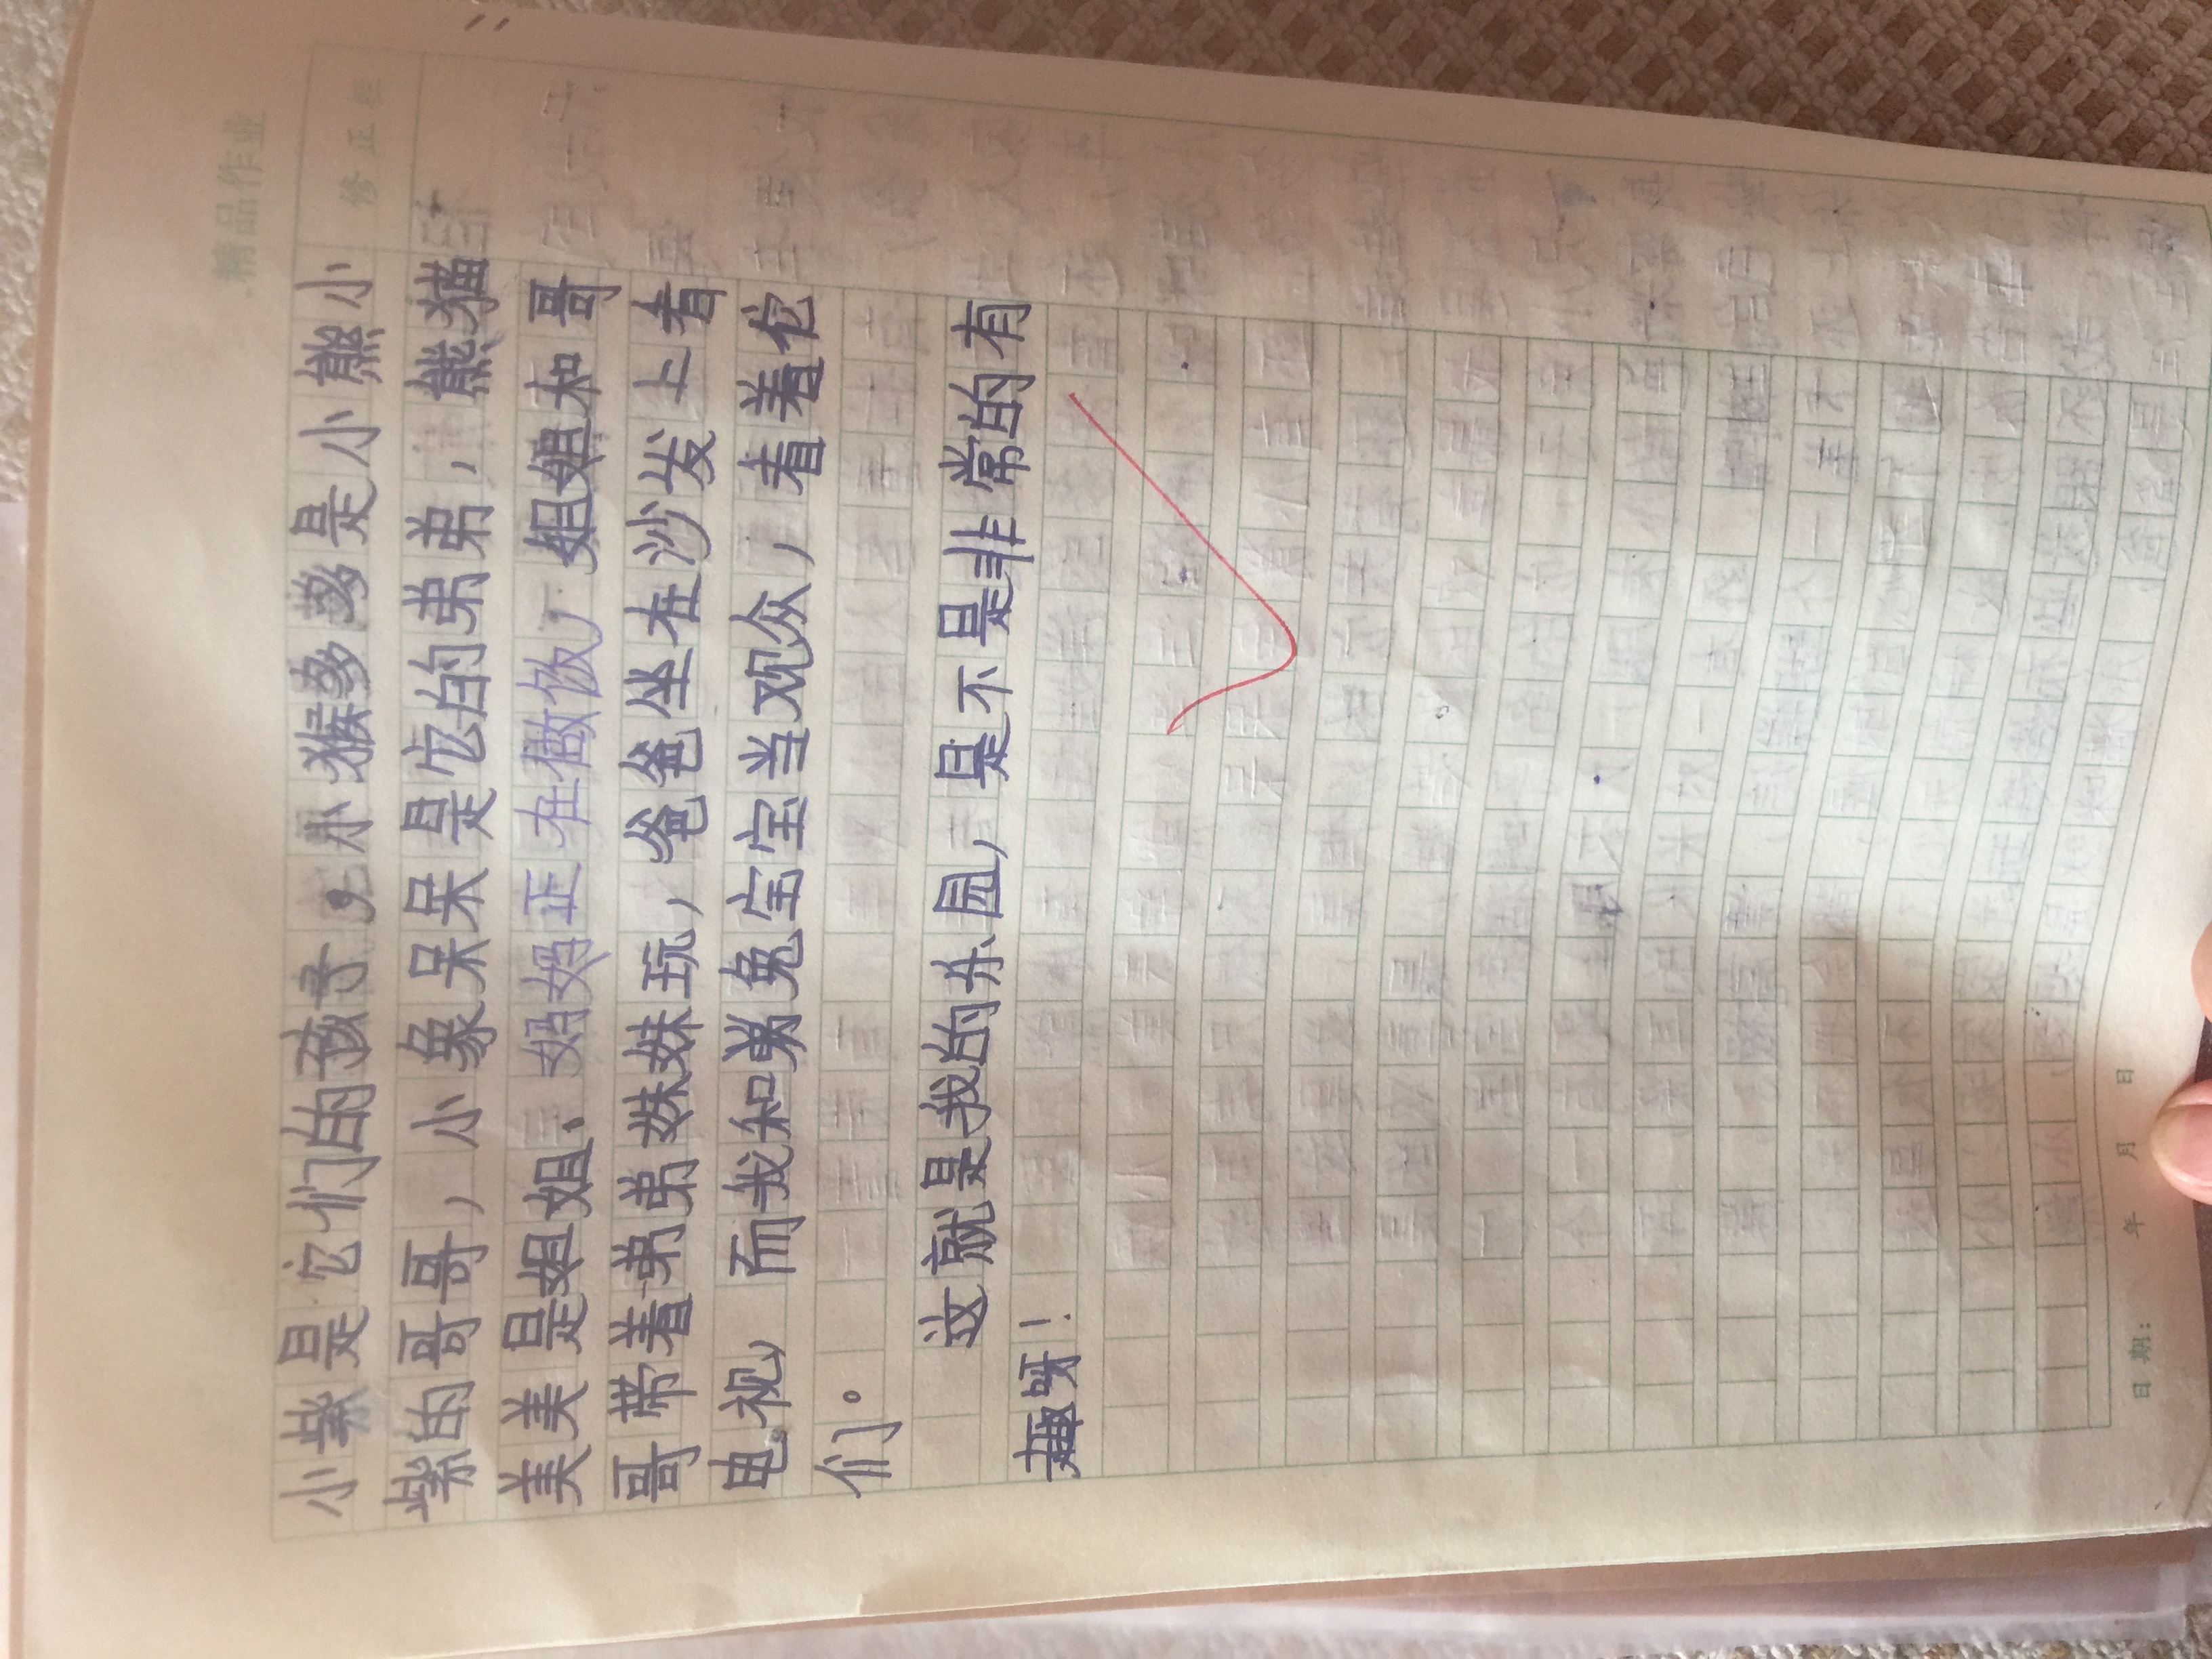 精品作业
修正栏
小紫是它们的孩子，小猴多多是小熊小
紫的哥哥，小象呆呆是它的弟弟，熊猫
美美是姐姐、妈妈正在做饭，姐姐和哥
哥带着弟弟妹妹玩，爸爸坐在沙发上看
电视，而我和弟兔宝宝当观众，看着它
们。
这就是我的乐园，是不是非常的有
趣呀！
日期： 年 月 日